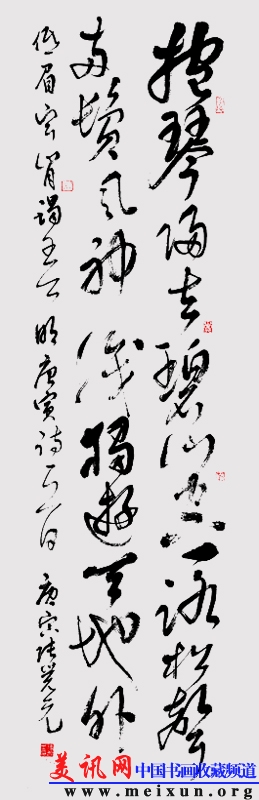 抱琴歸去碧山空一路松聲
兩鬢風神識獨遊天地外
低眉寧肯謁王公 明唐寅詩一首 庚寅
美讯网 中国书画收藏频道
www.meixun.org